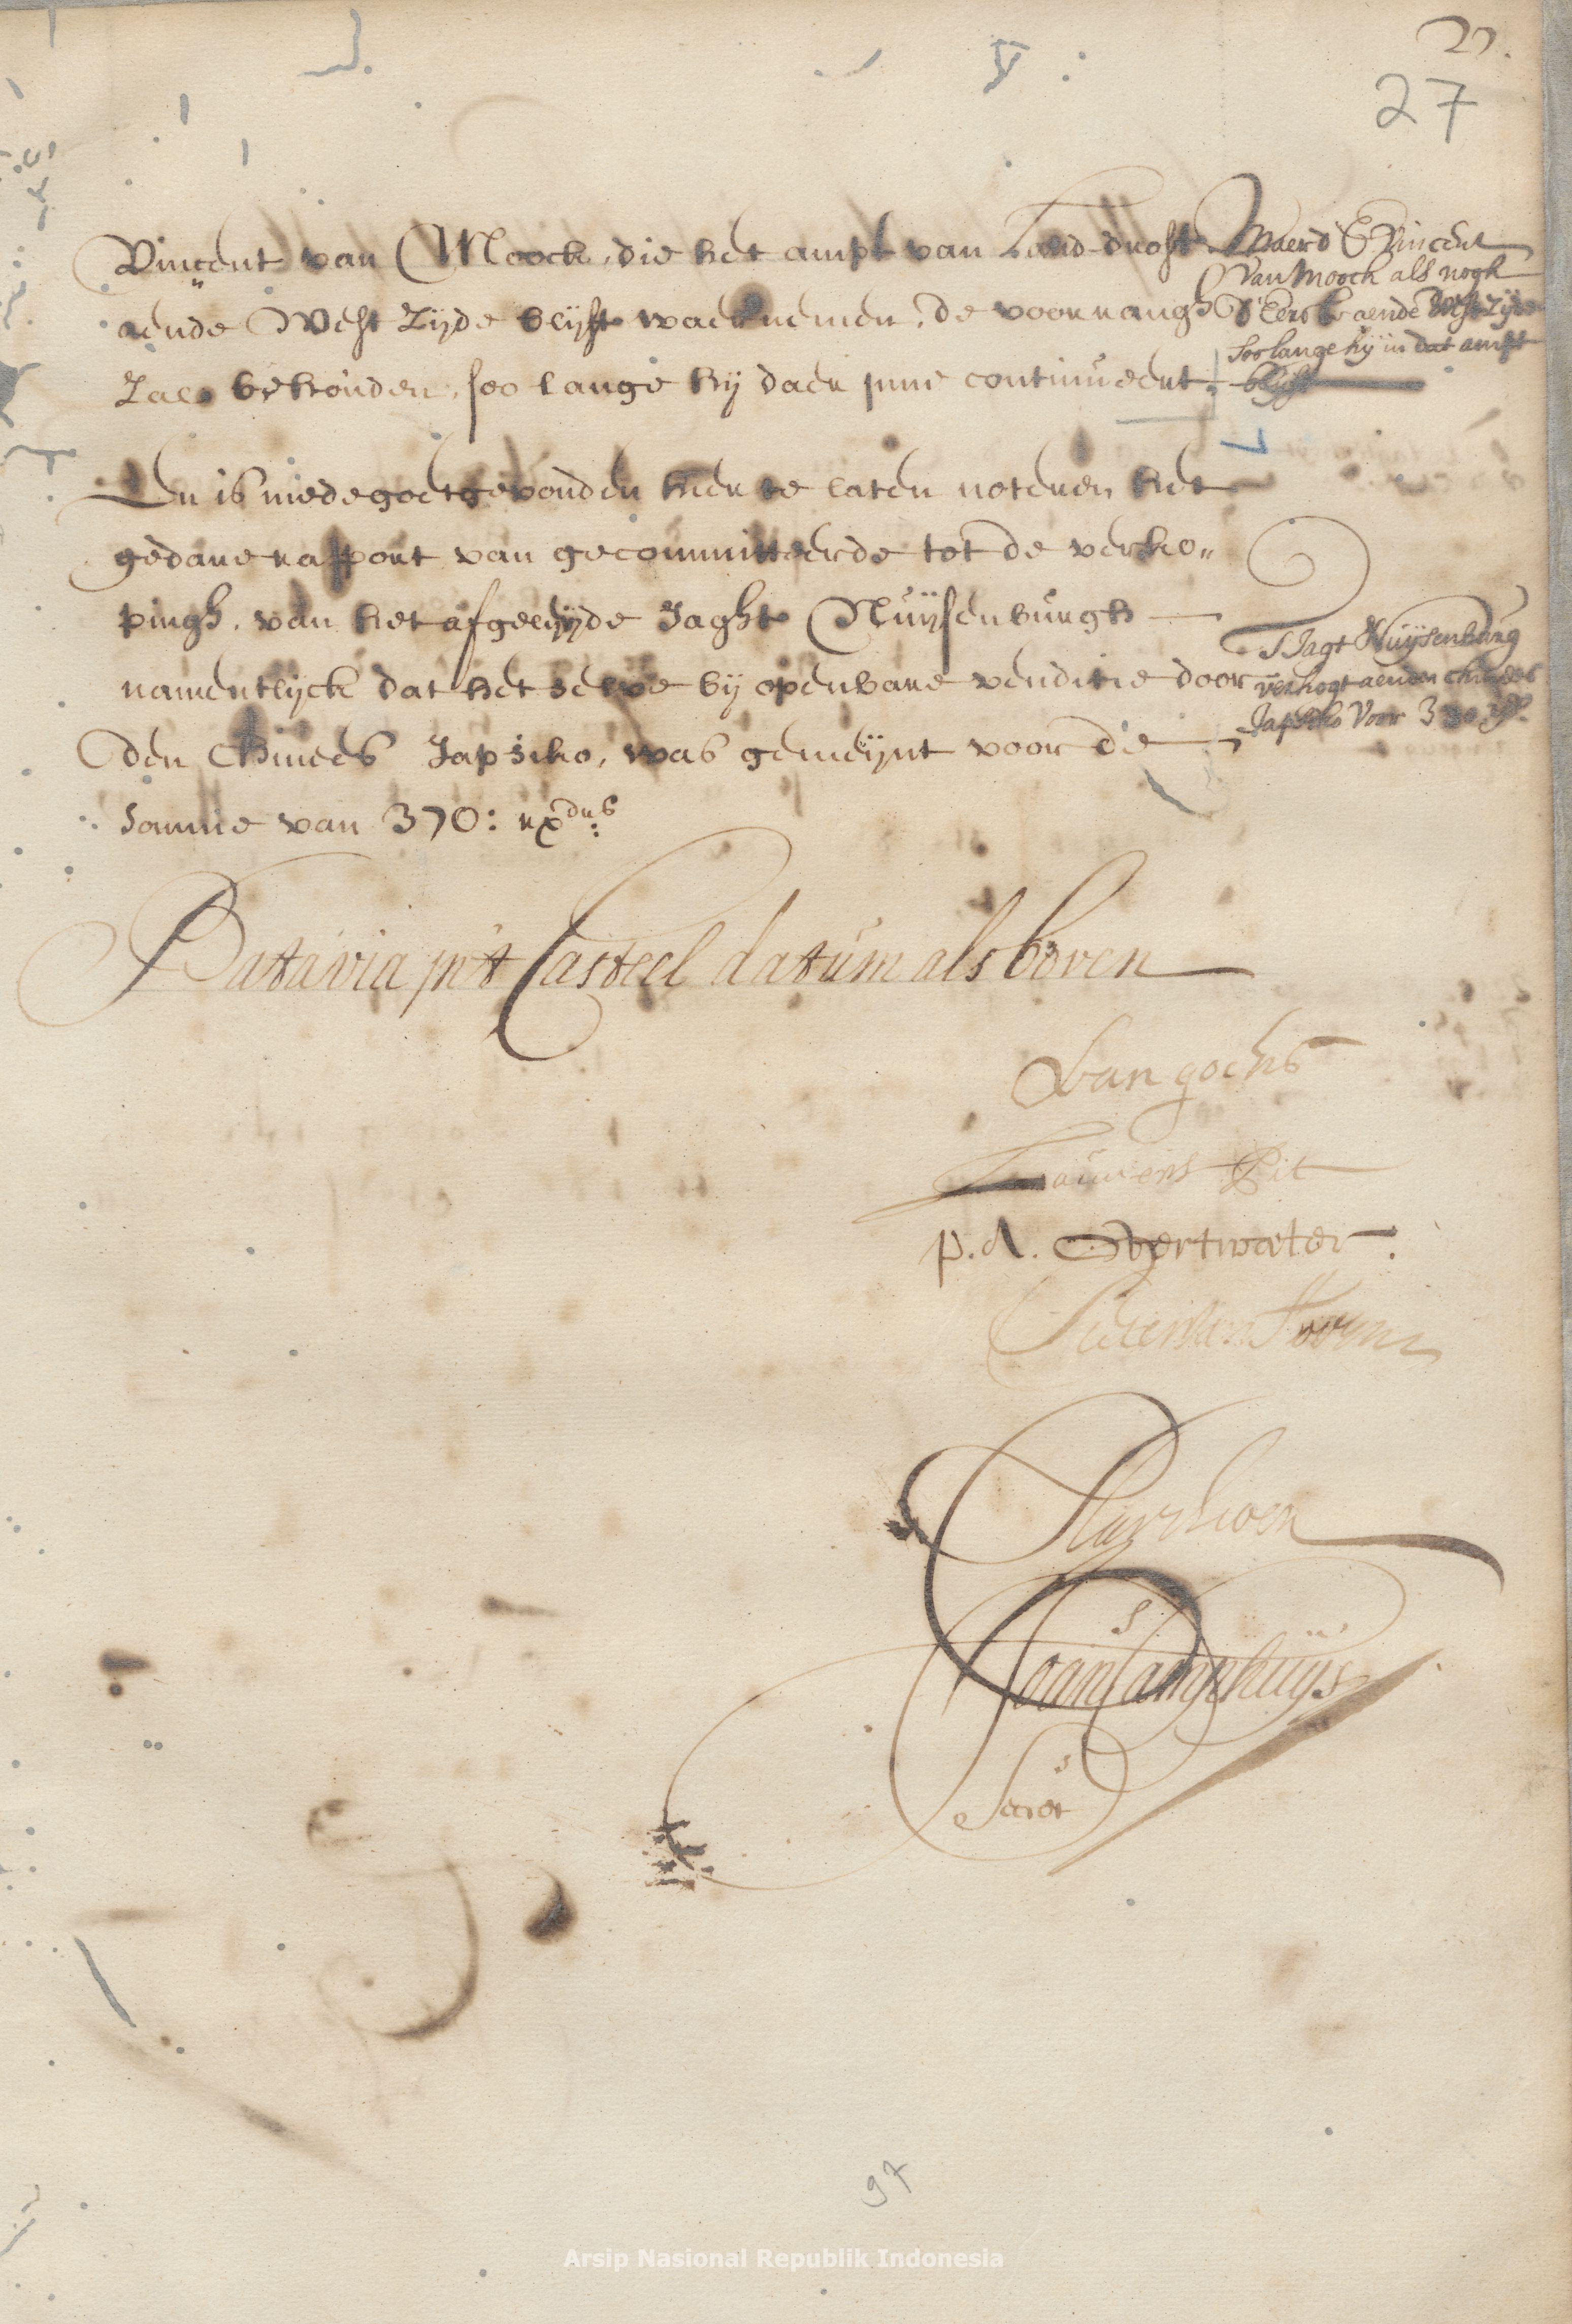 27.
27
Vincent van Moock, die het ampt van Land-drost
aende West Zijde blijft waernemen, de voorrangh
Zal behouden, soo lange hij daer inne continueert.
Waerd E Vincent
van Moock als nogh
d'Eerste aende West Zijde
soo lange hij in dat ampt
blijft
En is mede goetgevonden hier te laten noteren het
gedane rapport van gecommitteerde tot de verko„
pingh, van het afgeleyde Jaght Nuijsenburgh
namentlijck dat het selve bij openbare venditie door
den Chinees Japsiko, was gemeijnt voor de
somme van 370: rxdrs
't Jagt Nuijsenburg
verkogt aenden chinees
Japsiko voor 370 rds
Batavia in't Casteel datum als boven
van goens
Lauwens Pit
P. A. Overtwater
Pieter van Hoorn
Joan Camphuijs
Secrets
97
Arsip Nasional Republik Indonesia